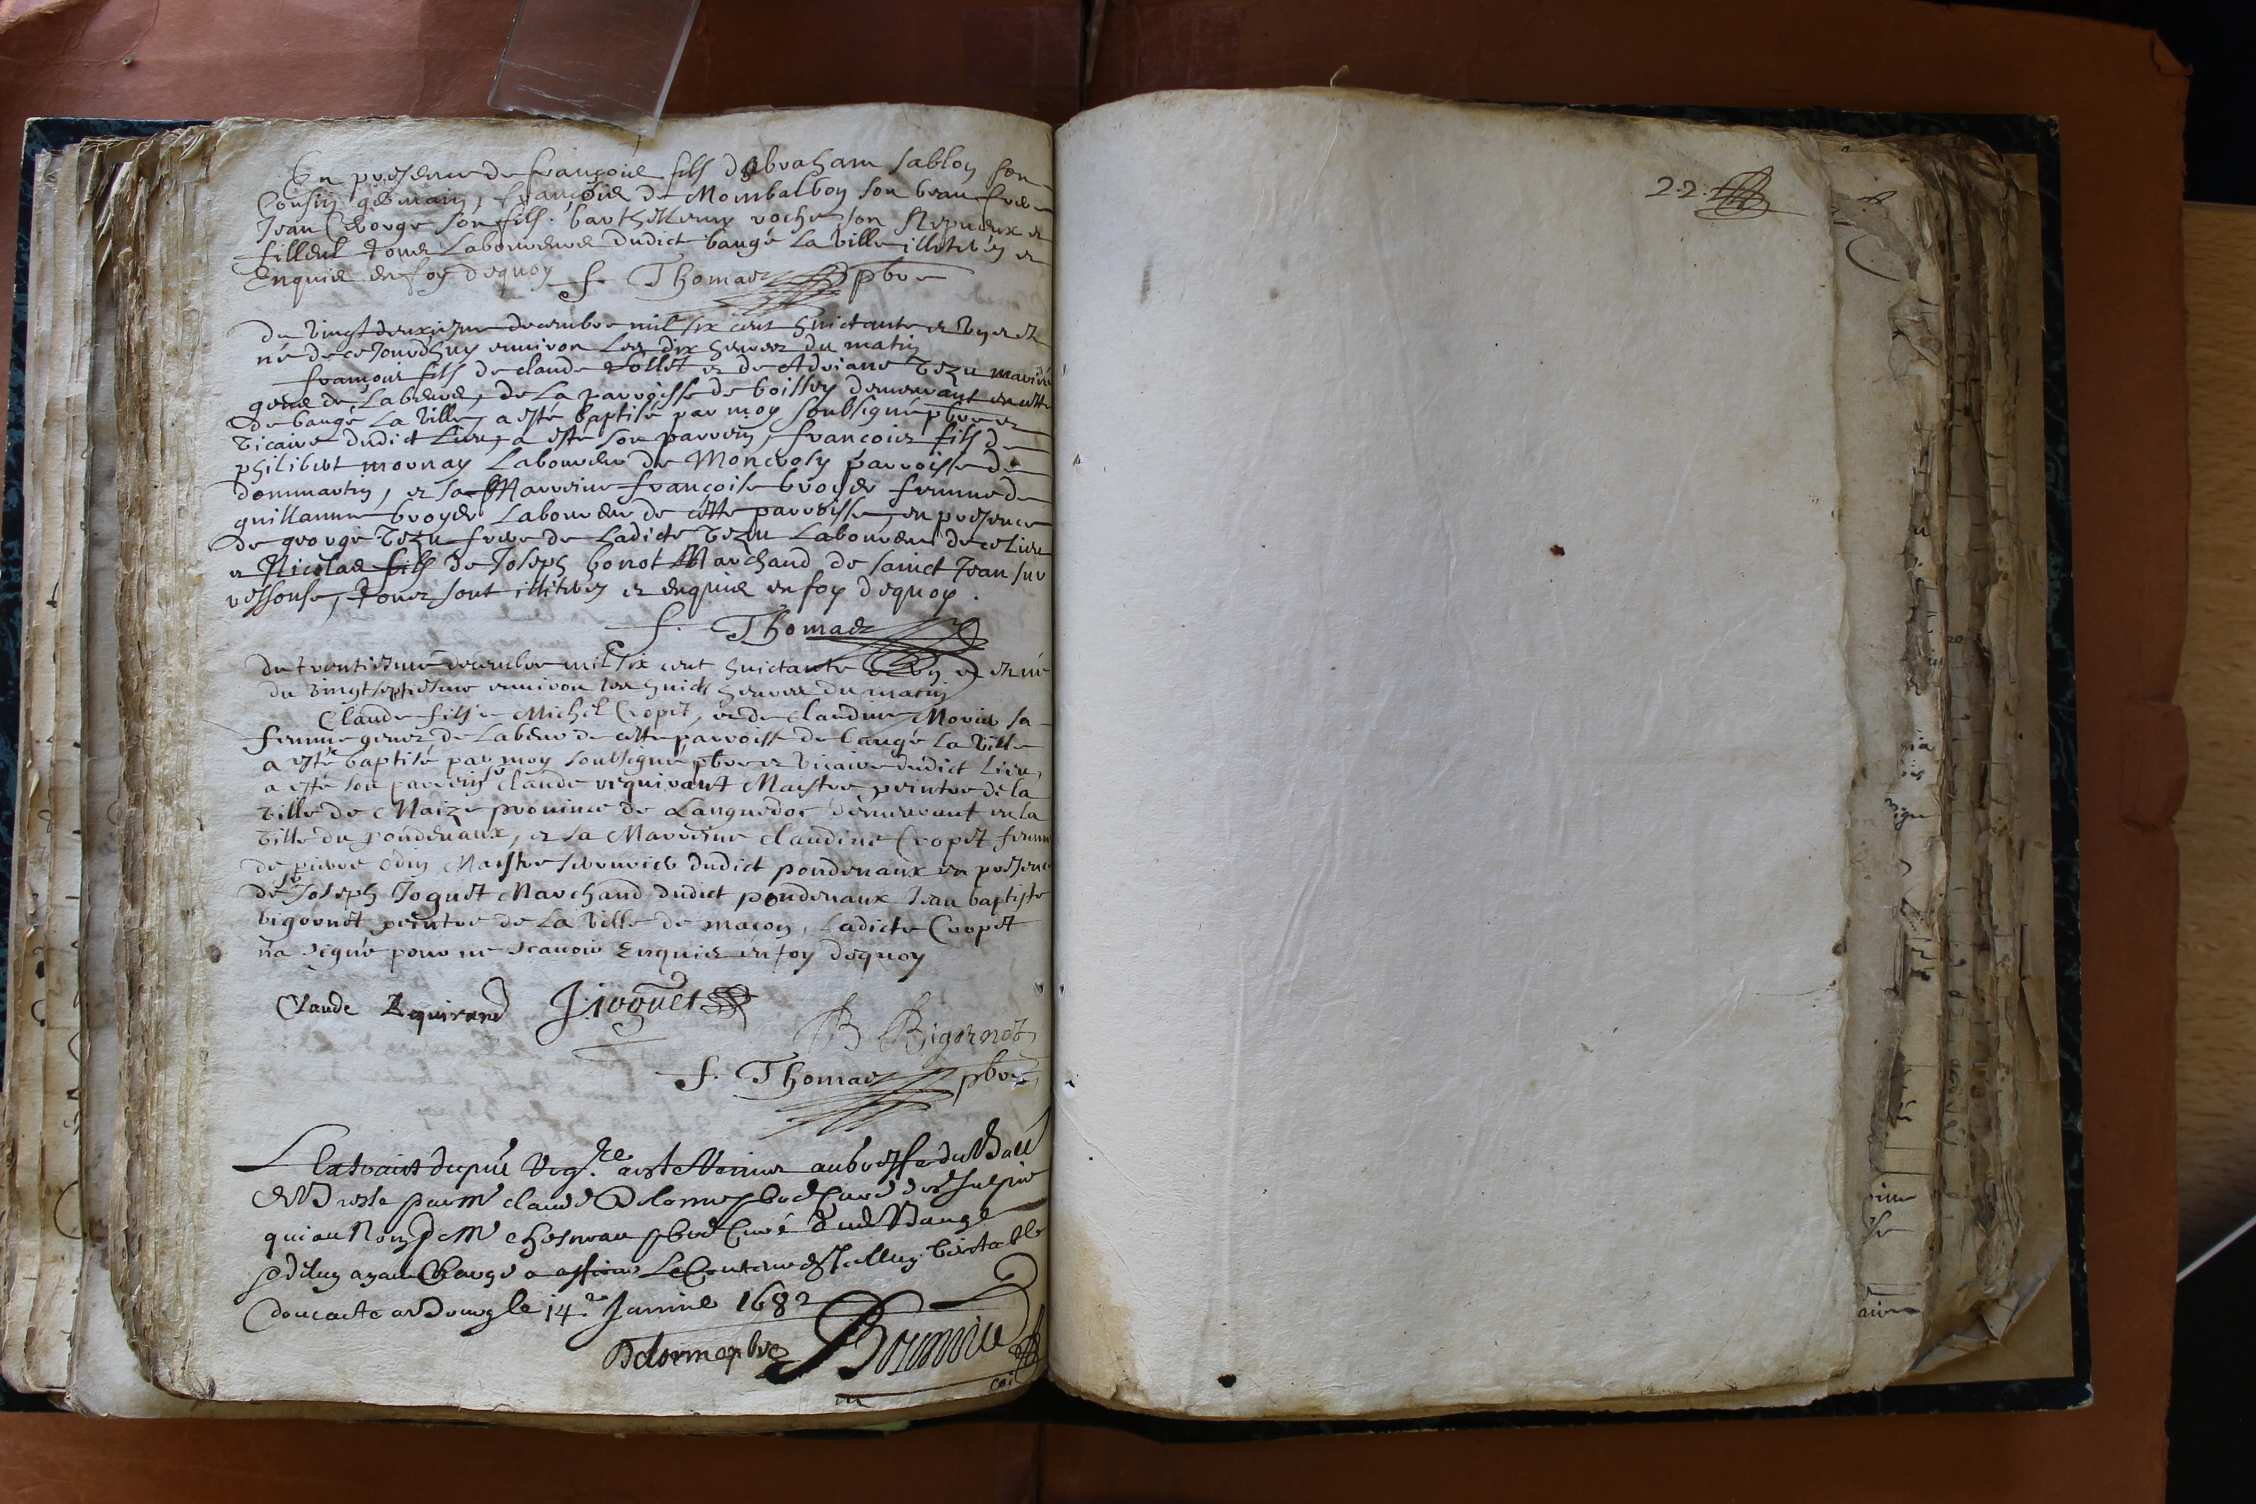 En presence de françois fils d'Abraham sablon son
Cousin germain, françois de Mombalbon son beau frere
Jean George son fils. barthelemy roche son Nepueux et
filleul tous Laboureurs dudict baugé La ville illitérés et
Enquis en foy dequoy f. Thomas pbre
du vingt deuxiesme decembre mil six cent huictante et un et est
né de ce Jourdhuy environ Les dix heures du matin
françois fils de claude Vollet et de Adriane Tezu mariés
gens de Labeur, de La parroisse de boissey demeurant en cette
de baugé La Ville, a esté baptisé par moy soubsigné pbre et
vicaire dudict Lieu, a esté son parrein, françois fils de
philibert mornay Laboureur de Moncrosy parroisse de
dommartin, et sa Marreine françoise broyer femme de
guillaume broyer Laboureur de cette parroisse, en presence
de george Tezu frere de Ladicte Tezu Laboureur de ce Lieu
et Nicolas fils de Joseph bonot Marchand de sainct Jean sur
ressouse, tous sont illiterés et enquis en foy dequoy.
f. Thomas
du trentiesme decembre mil six cent huictante et un et est né
du vingt septiesme environ les huict heures du matin
Claude fils e Michel Cropet, et de claudine Morier sa
femme gens de Labeur de cette parroisse de baugé La Ville
a esté baptisé par moy soubsigné pbre et vicaire dudict Lieu,
a esté son parrein sr claude requirant Maistre peintre de la
ville de Maize province de Languedoc demeurant en la
ville du pondevaux, et sa Marreine claudine Cropet femme
de pierre Odin Maistre serrurier dudict pondevaux en presence
de sr Joseph Joguet Marchand dudict pondevaux Jean baptiste
bigornet peintre de La ville de macon, Ladicte Cropet
na signé pour ne scauoir Enquis en foy dequoy
Claude Requirand J. ioguet
B Bigornot
f. Thomas pbre
Lextraict du pnt Reg.re a esté remis au greffe du Bau
de Bresse par mr claude Delorme pbre Curé de st Sulpis
qui au Nom de mr chesneau pbre Curé dud Baugé
Le Contenu en Icelluy veritable
Dont acte a Bourg le 14e Januier 1682
Delorme pbre
22.